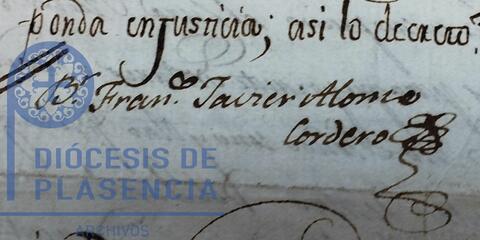 ponda en justicia; asi lo decreto
Br Franco Javier Alonso
Cordero
DIÓCESIS DE
PLASENCIA
ARCHIVOS